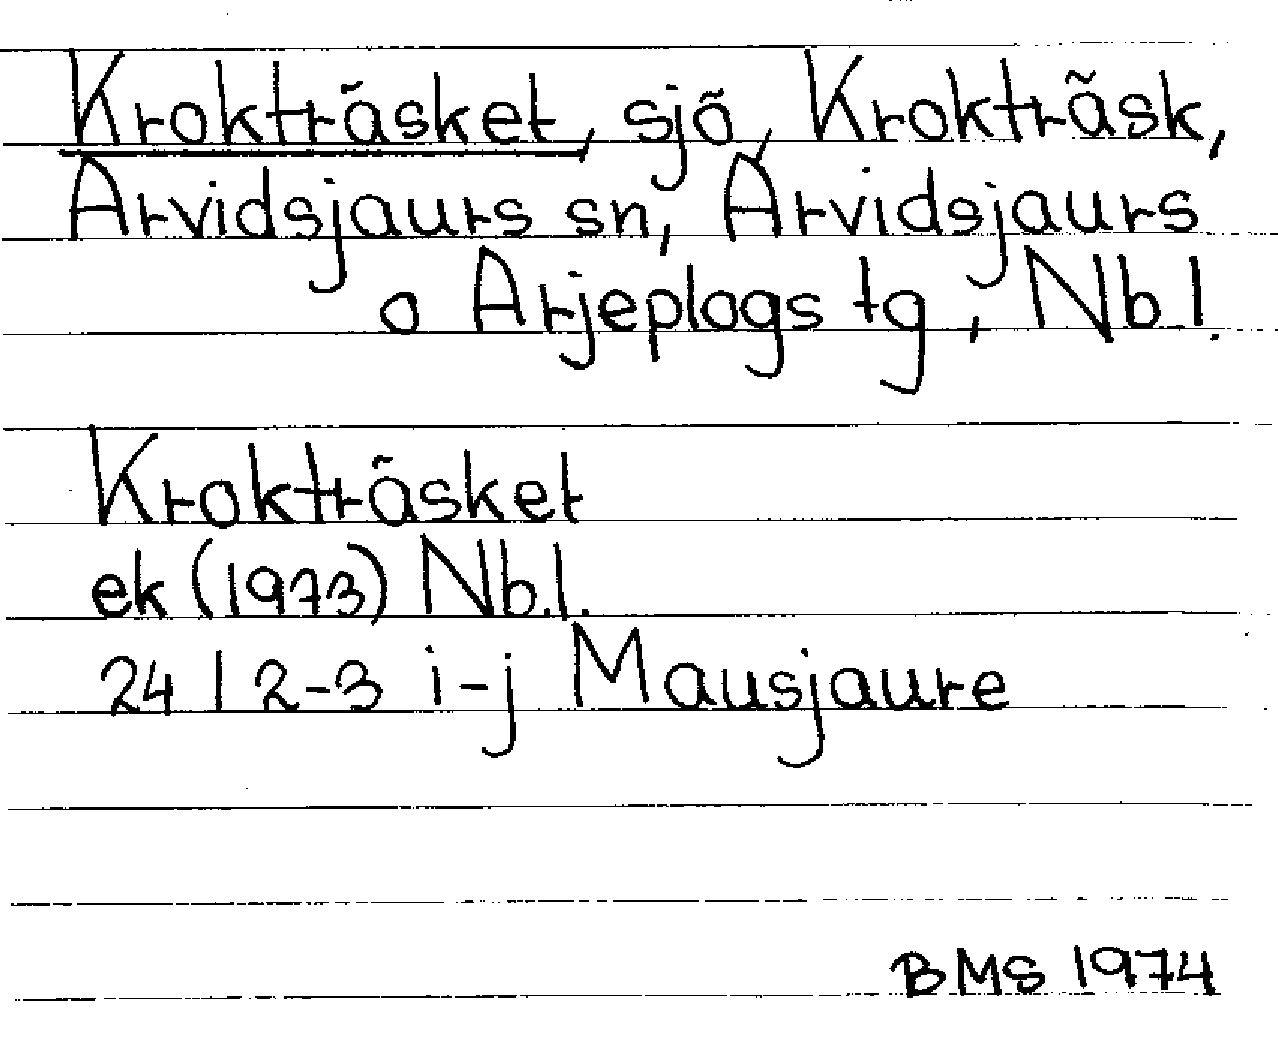 Krokträsket, sjö, Krokträsk,
Arvidsjaurs sn, Arvidsjaurs
o Arjeplogs tg, Nb.l.
Krokträsket
ek (1973) Nb.l.
24 I 2-3 i-j Mausjaure
BMS 1974